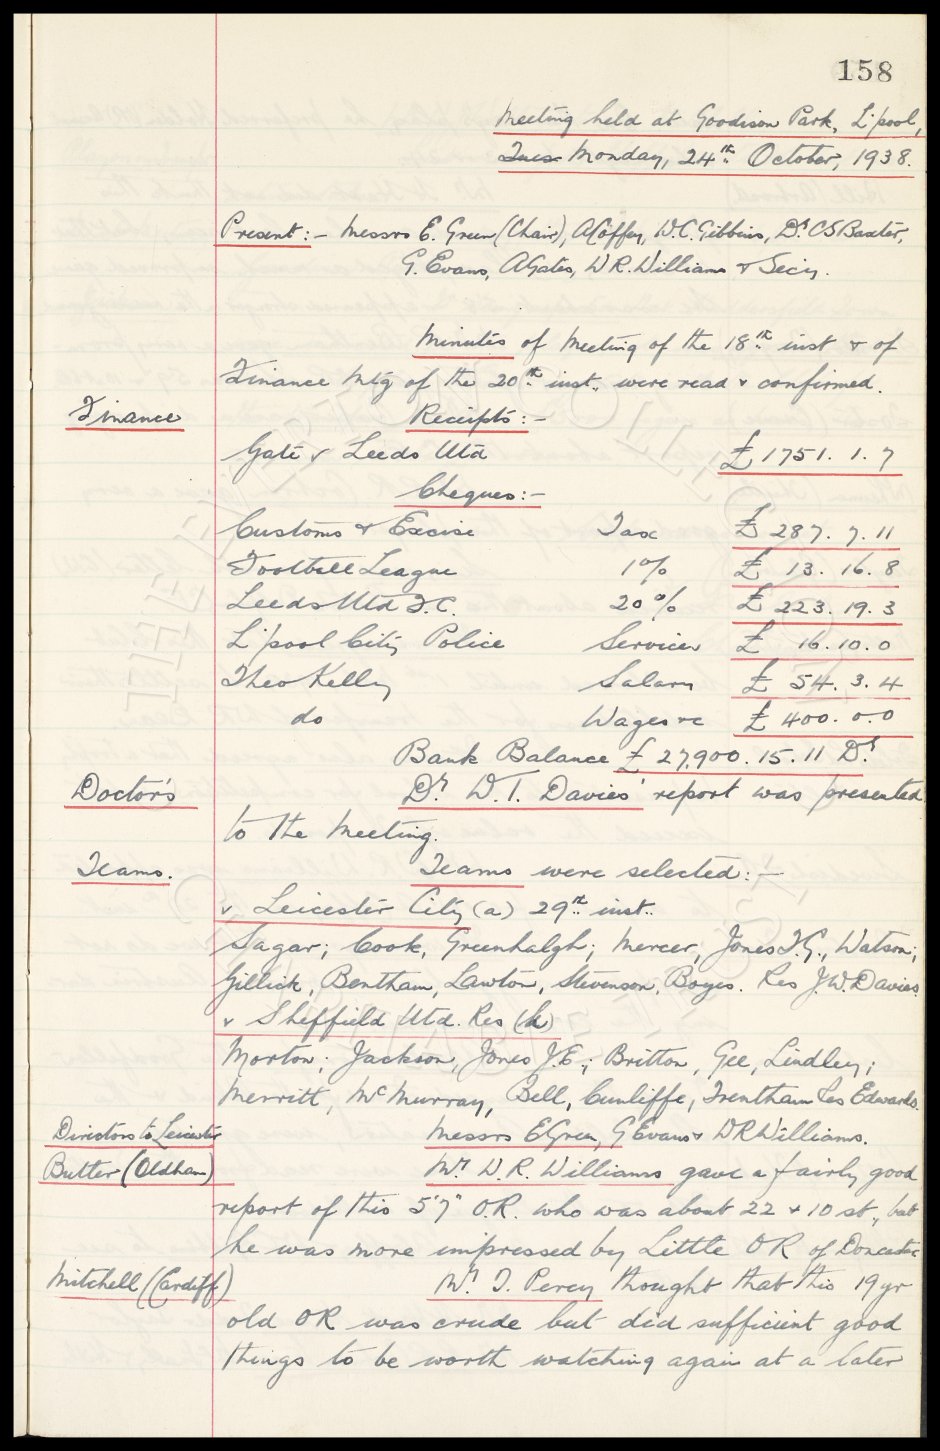 158
Meeting held at Goodison Park, L'pool,
Tues Monday, 24th October, 1938.
Present:- Messrs E. Green (Chair), A Coffey, W.C. Gibbins, Dr. C S Baxter,
G. Evans, A Gates, W R. Williams & Secy.
Minutes of Meeting of the 18th inst & of
Finance Mtg of the 20th inst. were read & confirmed.
Finance Receipts:-
Gate v Leeds Utd £1751. 1. 7
Cheques:-
Customs & Excise Tax £ 287. 7. 11
Football League 1% £ 13. 16. 8
Leeds Utd F.C. 20% £ 223. 19. 3
L'pool City Police Services £ 16. 10. 0
Theo Kelly Salary £ 54. 3. 4
do Wages &c £ 400. 0. 0
Bank Balance £ 27,900. 15. 11 Dr.
Doctor's Dr. W. T. Davies' report was presented
to the Meeting.
Teams. Teams were selected:-
v Leicester City (a) 29th inst..
Sagar; Cook, Greenhalgh; Mercer, Jones T.G., Watson;
Gillick, Bentham, Lawton, Stevenson, Boyes. Res J.W. Davies.
v Sheffield Utd. Res (h)
Morton; Jackson, Jones J.E.; Britton, Gee, Lindley;
Merritt, McMurray, Bell, Cunliffe, Trentham Res Edwards.
Directors to Leicester Messrs E Green, G Evans & W R Williams.
Butler (Oldham) Mr. W. R. Williams gave a fairly good
report of this 5'7" O.R. who was about 22 & 10 st., but
he was more impressed by Little OR of Doncaster
Mitchell (Cardiff) Mr. T. Percy thought that this 19 yr
old OR was crude but did sufficient good
things to be worth watching again at a later